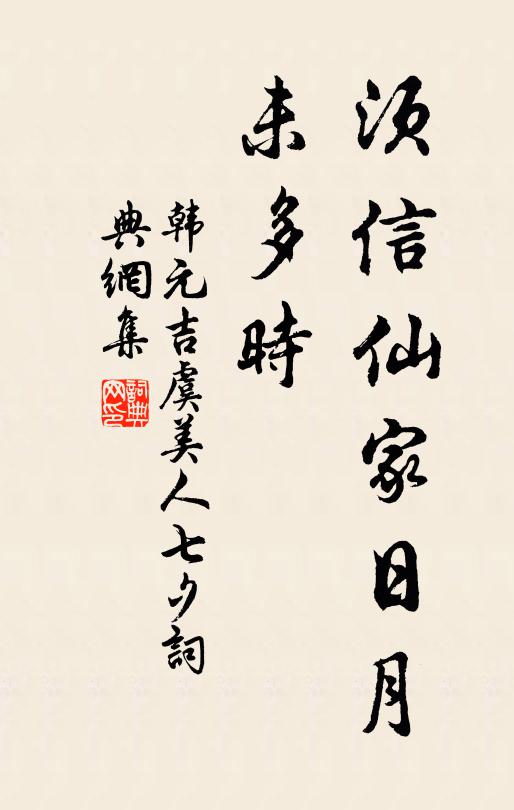 须信仙家日月
未多時
韩元吉虞美人七夕詞
典網集
詞典
网印